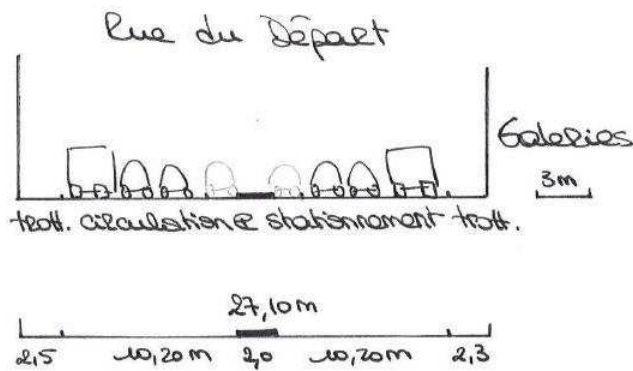 Rue du Départ
Galeries
3m
trott. circulation & stationnement trott.
27,10m
2,5 10,20m 2,0 10,20m 2,3